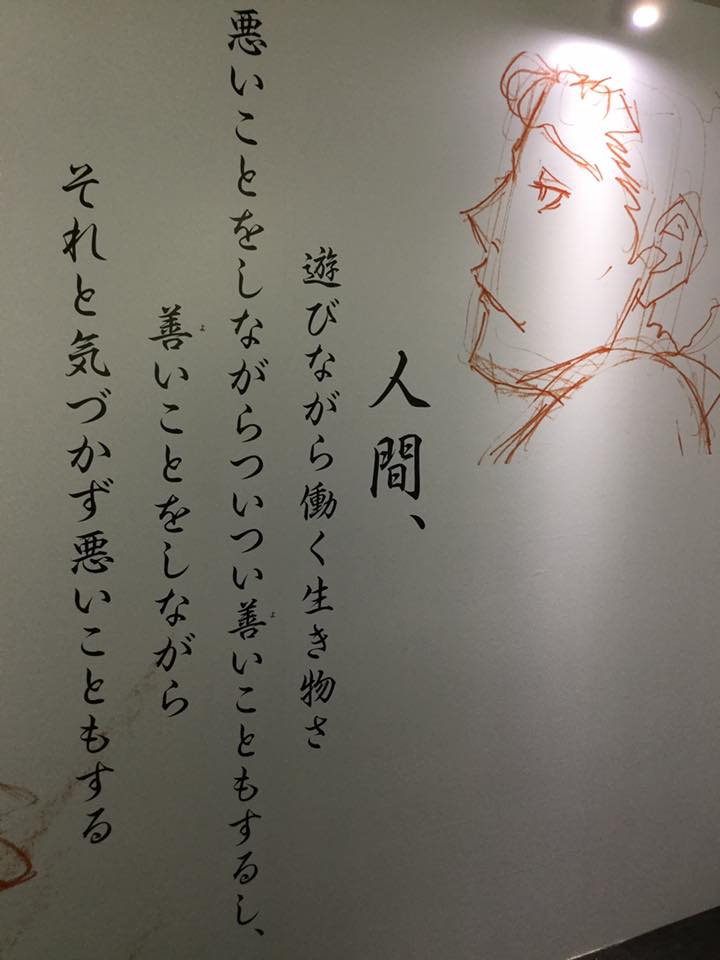 人間、
遊びながら働く生き物さ
悪いことをしながらついつい善いこともするし、
善いことをしながら
それと気づかず悪いこともする